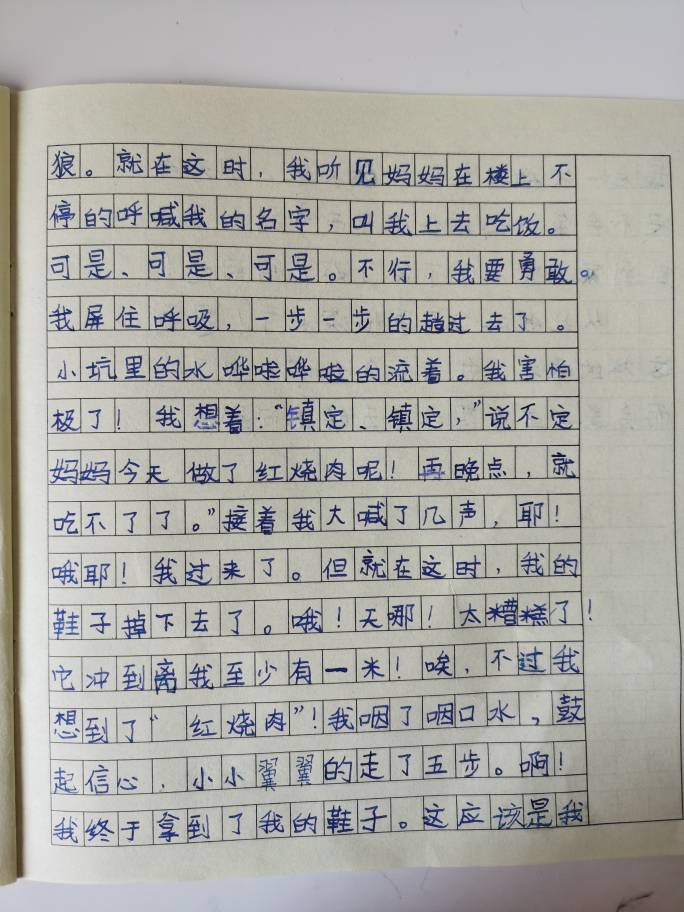 狼。就在这时，我听见妈妈在楼上不
停的呼喊我的名字，叫我上去吃饭。
可是、可是、可是。不行，我要勇敢。
我屏住呼吸，一步一步的趟过去了。
小坑里的水哗啦哗啦的流着。我害怕
极了！我想着：“镇定、镇定，”说不定
妈妈今天做了红烧肉呢！再晚点，就
吃不了了。”接着我大喊了几声，耶！
哦耶！我过来了。但就在这时，我的
鞋子掉下去了。哦！天哪！太糟糕了！
它冲到离我至少有一米！唉，不过我
想到了“红烧肉”！我咽了咽口水，鼓
起信心，小小翼翼的走了五步。啊！
我终于拿到了我的鞋子。这应该是我